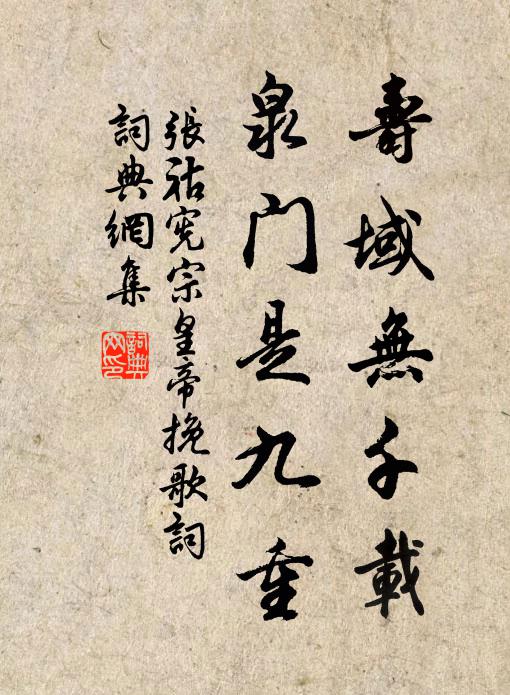 壽域無千載
泉門是九重
張祜憲宗皇帝挽歌詞
詞典網集
詞典
网印